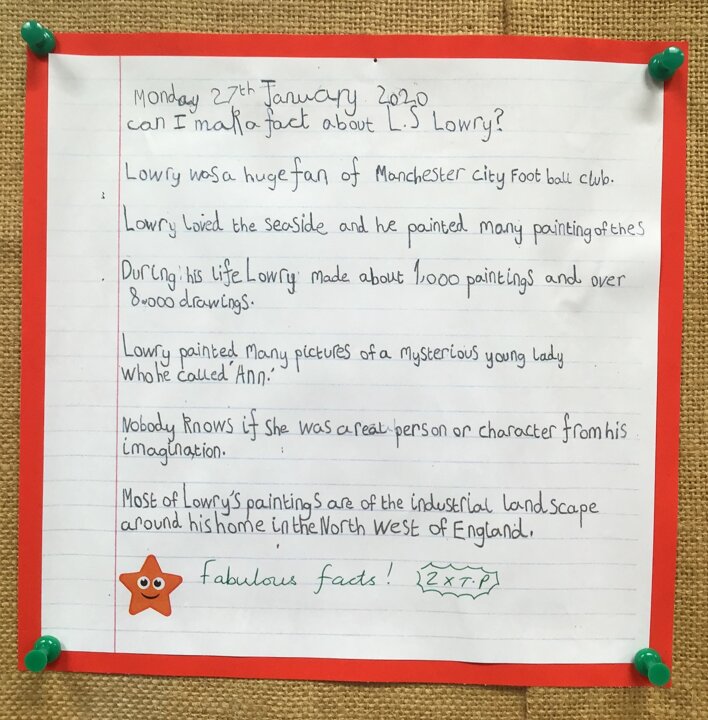 Monday 27th January 2020
can I mak a fact about L.S Lowry?
Lowry was a huge fan of Manchester city Foot ball club.
Lowry loved the seaside and he painted many painting of the S
During his life Lowry made about 1,000 paintings and over
8,000 drawings.
Lowry painted many pictures of a mysterious young lady
who he called 'Ann.'
Nobody knows if she was a real person or character from his
imagination.
Most of Lowry's paintings are of the industrial landscape
around his home in the North West of England.
fabulous facts! 2 x T.P